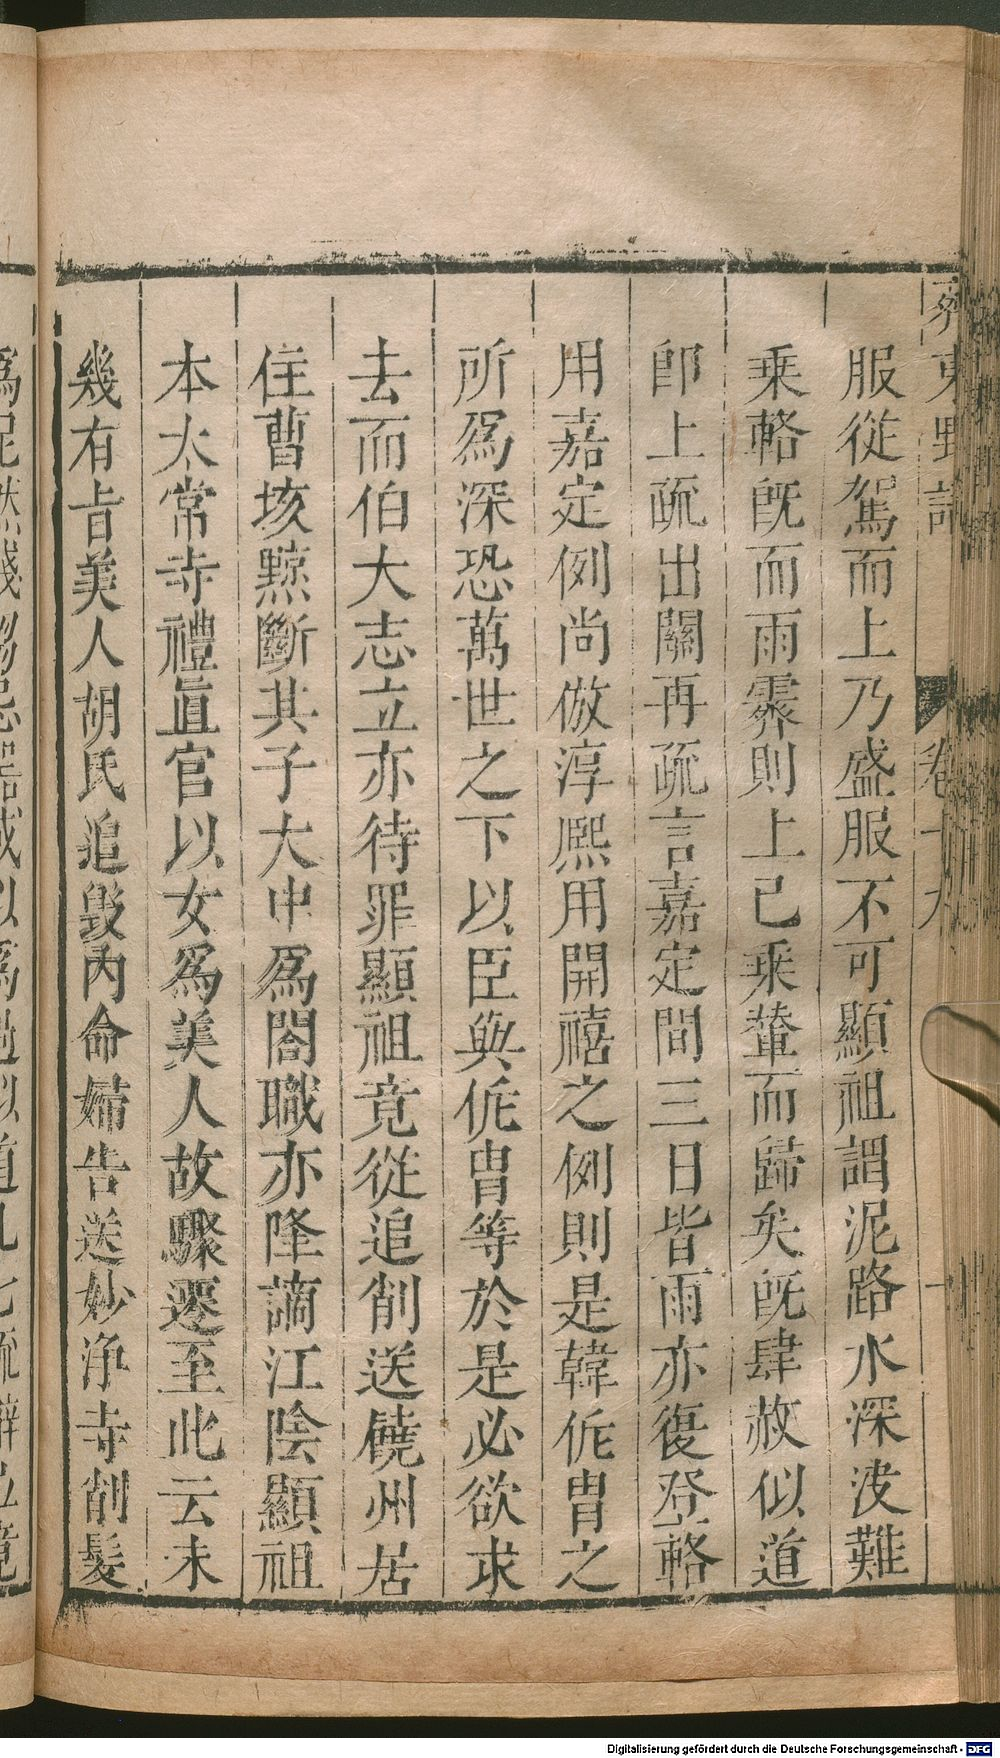 齊東野語 卷十九 十
服從駕而上乃盛服不可顯祖謂泥路水深沒難
乗輅旣而雨霽則上已乗輦而歸矣旣肆赦似道
卽上疏出關再疏言嘉定間三日皆雨亦復登輅
用嘉定例尚倣淳熈用開禧之例則是韓侂胄之
所爲深恐萬世之下以臣與侂胄等於是必欲求
去而伯大志立亦待罪顯祖竟從追削送饒州居
住曹垓黥斷其子大中爲閤職亦降謫江陰顯祖
本太常寺禮直官以女爲美人故驟遷至此云未
幾有旨美人胡氏追毀內命婦告送妙淨寺削髪
爲尼
Digitalisierung gefördert durch die Deutsche Forschungsgemeinschaft - DFG